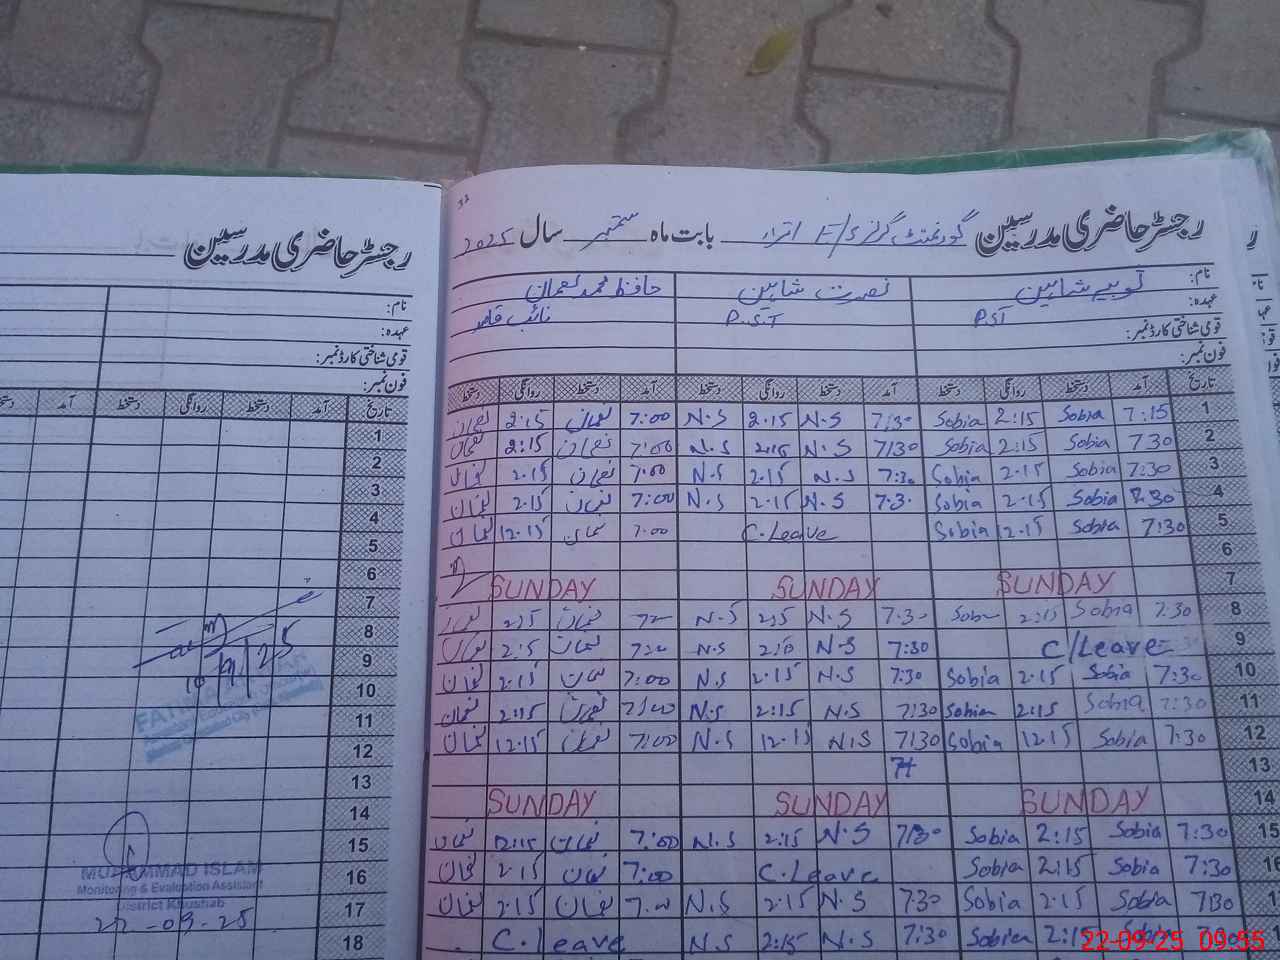 رجسٹر حاضری مدرسین گورنمنٹ گرلز E/S اترا بابت ماہ ستمبر سال 2025
نام: ثوبیہ شاہین نصرت شاہین حافظ محمد نعمان
عہدہ: P.ST P.S.T نائب قاصد
قومی شناختی کارڈ نمبر:
فون نمبر:
تاریخ آمد دستخط روانگی دستخط آمد دستخط روانگی دستخط آمد دستخط روانگی دستخط
1 7:15 Sobia 2:15 Sobia 7:30 N.S 2.15 N.S 7:00 نعمان 2:15 نعمان
2 7:30 Sobia 2:15 Sobia 7:30 N.S 2:15 N.S 7:00 نعمان 2:15 نعمان
3 7:30 Sobia 2.15 Sobia 7:30 N.S 2.15 N.S 7:00 نعمان 2.15 نعمان
4 7:30 Sobia 2.15 Sobia 7.30 N.S 2.15 N.S 7:00 نعمان 2.15 نعمان
5 7:30 Sobia 12.15 Sobia C.Leave 7:00 نعمان 12.15 نعمان
6
7 SUNDAY SUNDAY SUNDAY
8 7:30 Sobia 2:15 7.30 N.S N.S نعمان
9 C/Leave 7:30 N.S N.S نعمان
10 7:30 Sobia 2.15 Sobia 7:30 N.S 2.15 N.S 7:00 نعمان 2.15 نعمان
11 7:30 Sobia 2:15 Sobia 7:30 N.S 2:15 N.S 7:00 نعمان 2:15 نعمان
12 7:30 Sobia 12.15 Sobia 7:30 N.S 12.15 N.S 7:00 نعمان 12.15 نعمان
13
14 SUNDAY SUNDAY SUNDAY
15 7:30 Sobia 2:15 Sobia 7:30 N.S 2:15 N.S 7:00 نعمان 2:15 نعمان
16 7:30 Sobia 2:15 Sobia C.Leave 7:00 نعمان 2.15 نعمان
7:30 Sobia 2.15 Sobia 7:30 N.S 2.15 N.S نعمان 2.15 نعمان
Sobia 2:15 Sobia 7:30 N.S 2:15 N.S C.leave
رجسٹر حاضری مدرسین
نام:
عہدہ:
قومی شناختی کارڈ نمبر:
فون نمبر:
تاریخ آمد دستخط روانگی دستخط آمد دستخط
1
2
3
4
5
6
7
8
9
10
11
12
13
14
15
16
17
18
MUHAMMAD ISLAM
Monitoring & Evaluation Assistant
District Khushab
22-09-25
22-09-25 09:55